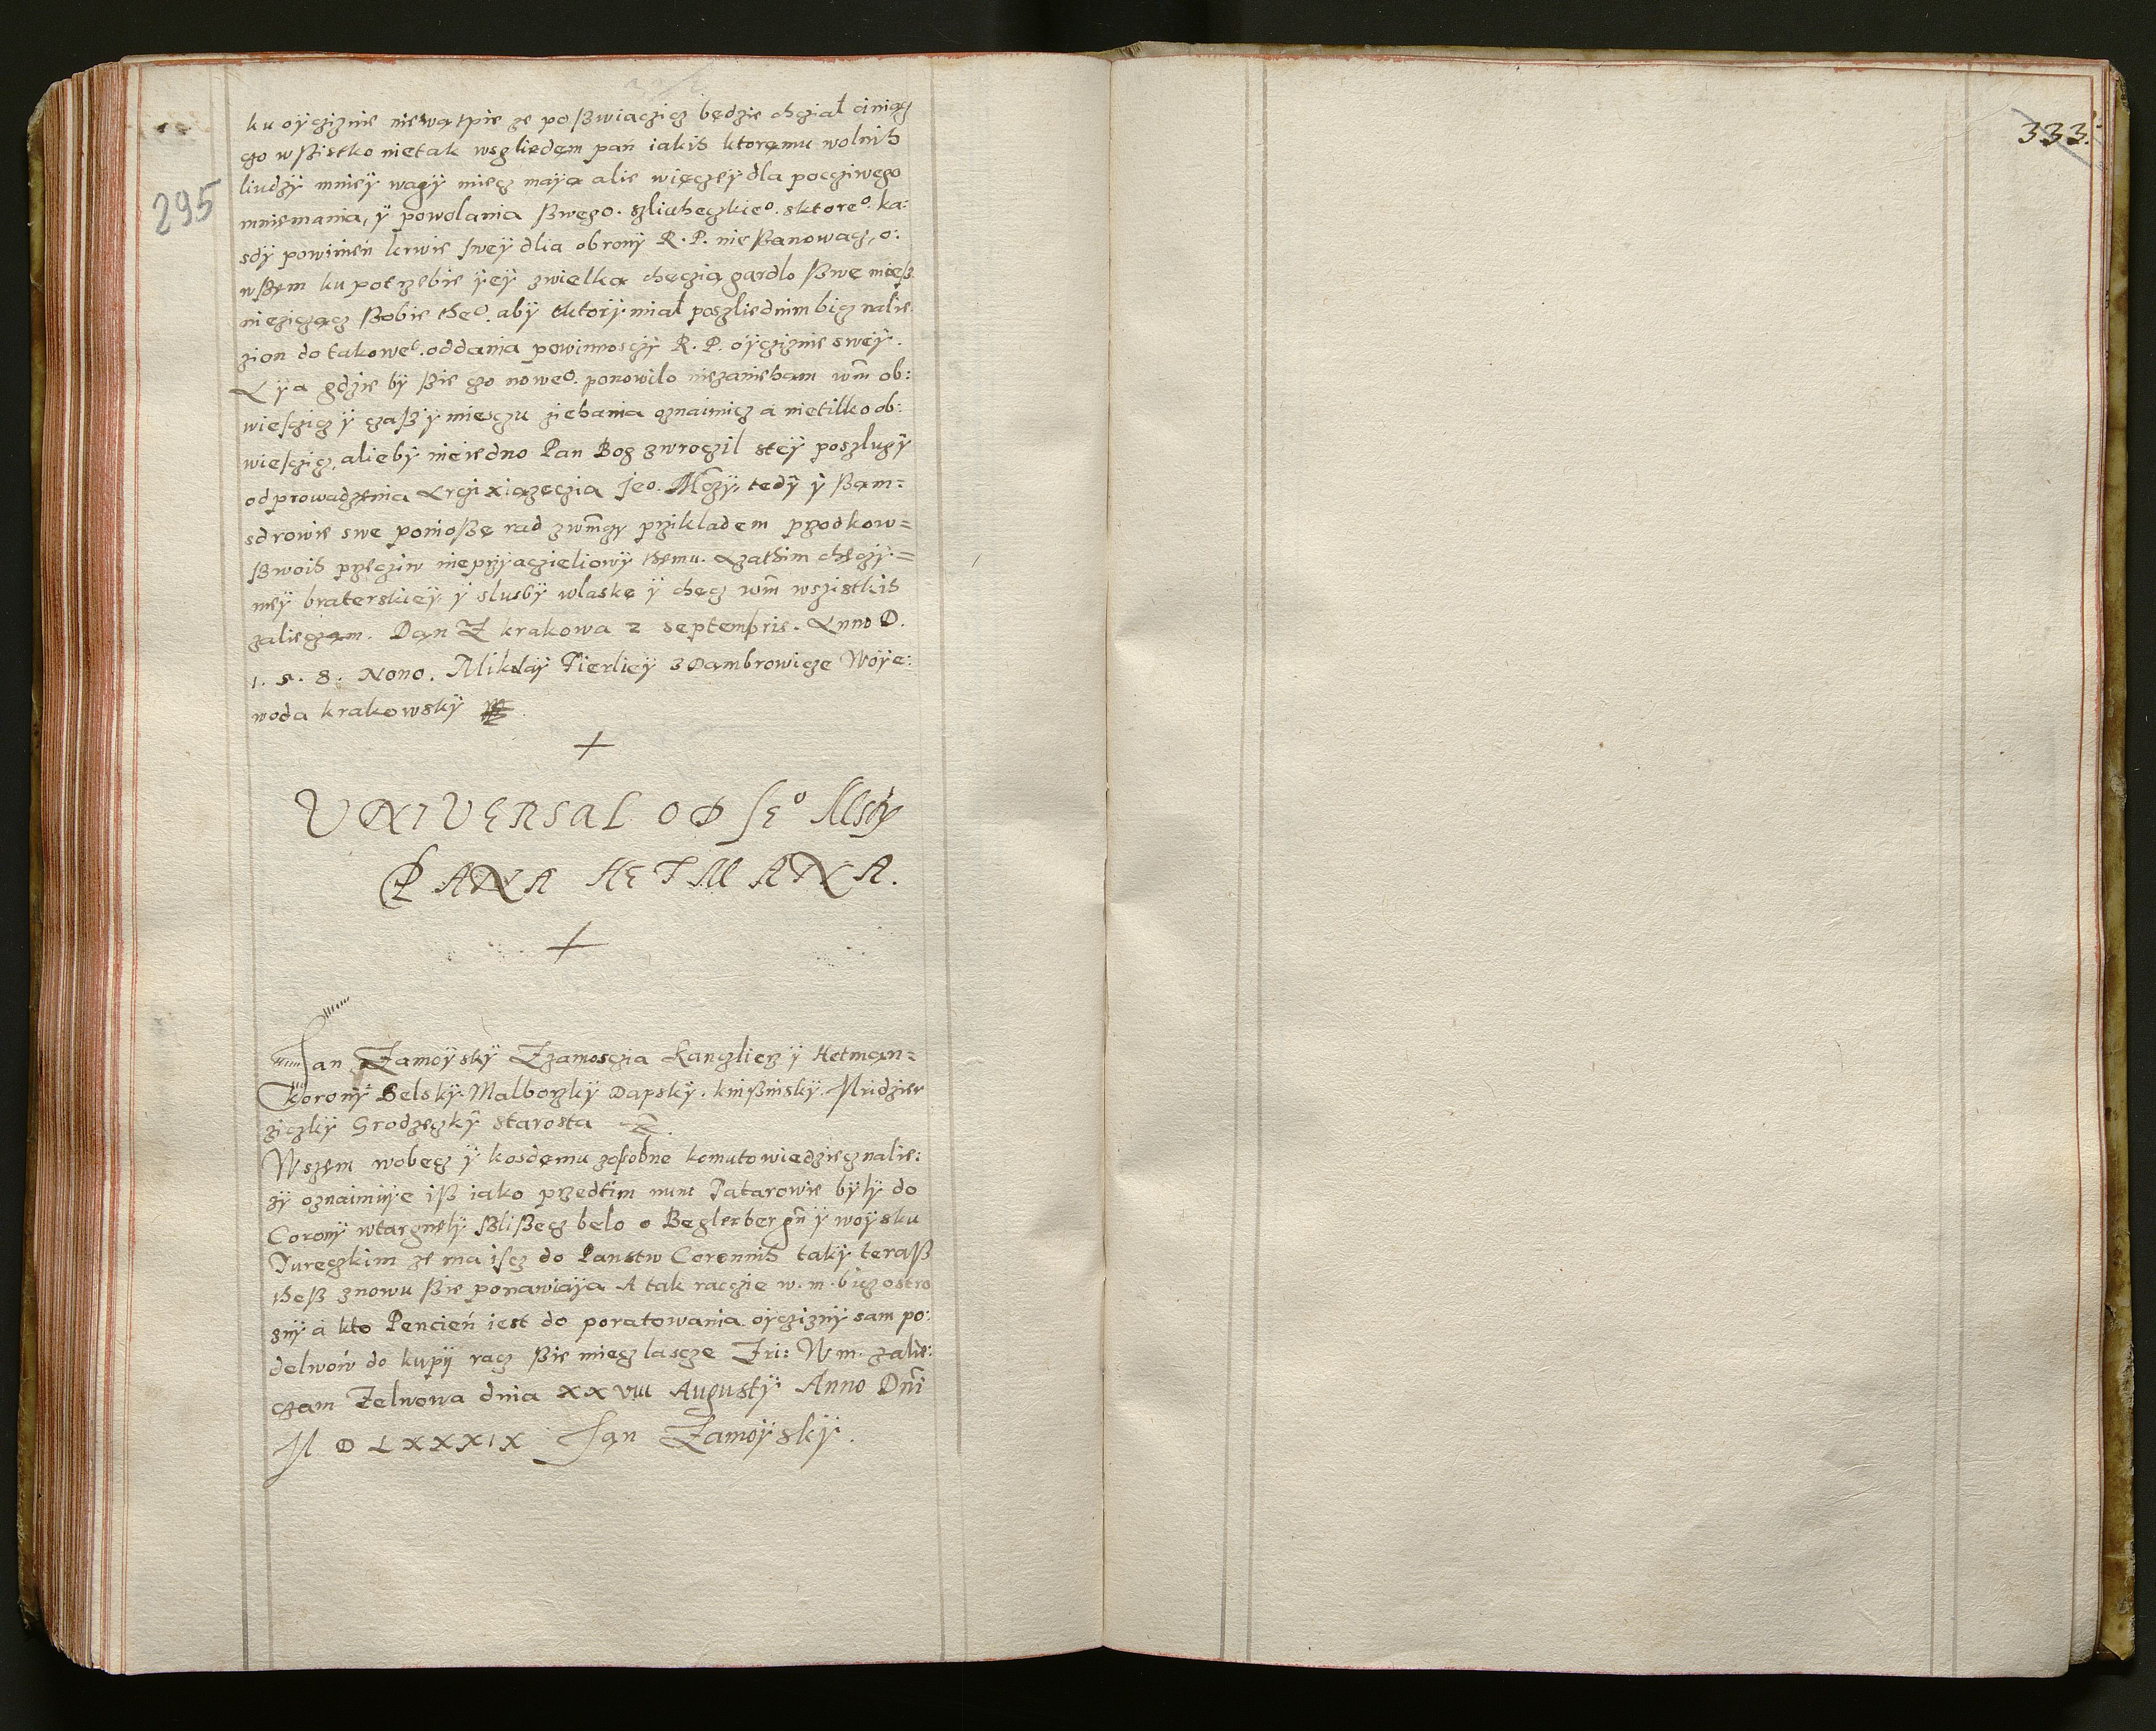 295
ku oÿcziznie niewątpie ze poßwiaczicz będzie chcział
go wßistko nietak wsgliedem pan iakih ktoremu wolnih
liudzÿ mnieÿ wagÿ miecz maÿa alie więczeÿ dla pocziwego
mniemania, ÿ powolania ßwego. szliacheczkieº. sktoreº. ka:
sdÿ powinień krwie sweÿ dlia obronÿ R. P. nießanowacz, o:
wßem ku potrzebie ÿeÿ zwielka checzią gardlo ßwe
nieziczącz ßobie theº. abÿ ktorÿ miał poszliednim bicz nalie
zion do takoweº. oddania powinnosczÿ R. P. oÿcziznie sweÿ.
A ÿa gdzie bÿ ßie czo noweº. ponowilo niezaniecham wm̃ ob:
wiesczicz ÿ czaßÿ miesczu ziehania oznaimicz a nietilko ob:
wiesczicz, aliebÿ nieiedno Pan Bog zwroczil steÿ poszlugÿ
odprowadzenia Arczixiązęczia Jeo. Mczÿ, tedÿ ÿ ßam=
sdrowie swe pomoßę rad zwm̃czÿ przikladem przodkow=
ßwoih przecziw nieprzÿaczieliowÿ themu. Azathim chęczÿ=
meÿ braterskieÿ ÿ slusbÿ wlaskę ÿ chęcz wm̃ wszistkih
zalieczam. Dan Z krakowa 2 septembris. Anno D.
1. 5. 8. Nono. Mikłaÿ Fierlieÿ z Dambrowicze Woÿe:
woda krakowskÿ
UNIVERSAL OD JEº Msczÿ
PANA HETMANA.
Jan Zamoÿskÿ Zzamosczia Kanczlierz ÿ Hetman=
Koronÿ Belskÿ. Malborzkÿ Dapskÿ. knißinskÿ. Midzier
ziczkÿ Grodzeczkÿ starosta
Wszem wobecz ÿ kosdemu zosobne komuto wiedziecz nalie:
zÿ oznaimuÿe iß iako przedtim nim Tatarowie bÿlÿ do
Coronÿ wtargnelÿ ßlißecz belo o Beglerbergũ ÿ woÿsku
Tureczkim ze ma iscz do Panstw Coronnih takÿ teraß
theß znowu ßie ponawiaÿa A tak raczie w. m. bicz ostro
znÿ a kto Pencień iest do poratowania oÿcziznÿ sam po:
delwów do kupÿ racz ßie miecz lascze Zri: Wm. zalie:
czam Zelwowa dnia XXVIII Augustÿ Anno Dñi
M D LXXXIX Jan Zamoÿskÿ.
333.